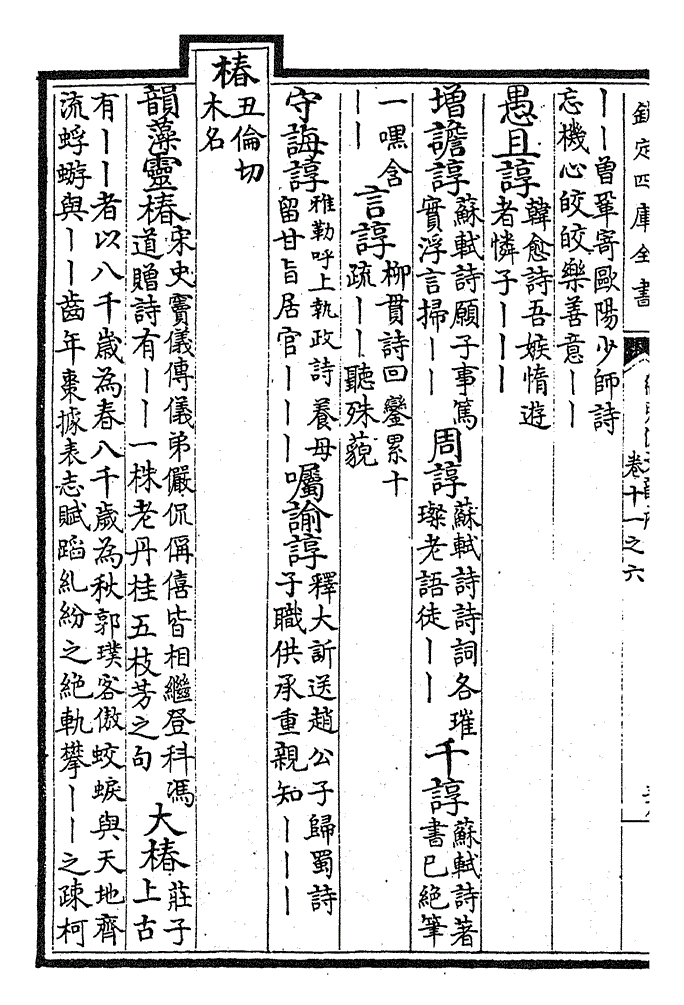 欽定四庫全書
卷十一之六
｜｜曾鞏寄歐陽少師詩
忘機心皎皎樂善意｜｜
愚且諄
韓愈詩吾嫉惰遊
者憐子｜｜｜
增譫諄
蘇軾詩願子事篤
實浮言掃｜｜
周諄
蘇軾詩詩詞各璀
璨老語徒｜｜
千諄
蘇軾詩著
書已絶筆
一嘿含
｜｜
言諄
柳貫詩回鑾累十
疏｜｜聽殊藐
守誨諄
雅勒呼上執政詩養母
留甘旨居官｜｜｜
囑諭諄
釋大訢送趙公子歸蜀詩
子職供承重親知｜｜｜
椿
丑倫切
木名
韻藻靈椿
宋史竇儀傳儀弟儼侃偁僖皆相繼登科馮
道贈詩有｜｜一株老丹桂五枝芳之句
大椿
莊子
上古
有｜｜者以八千歲為春八千歲為秋郭璞客傲蛟蜧與天地齊
流蜉蝣與｜｜齒年棗據表志賦蹈糺紛之絶軌攀｜｜之疎柯